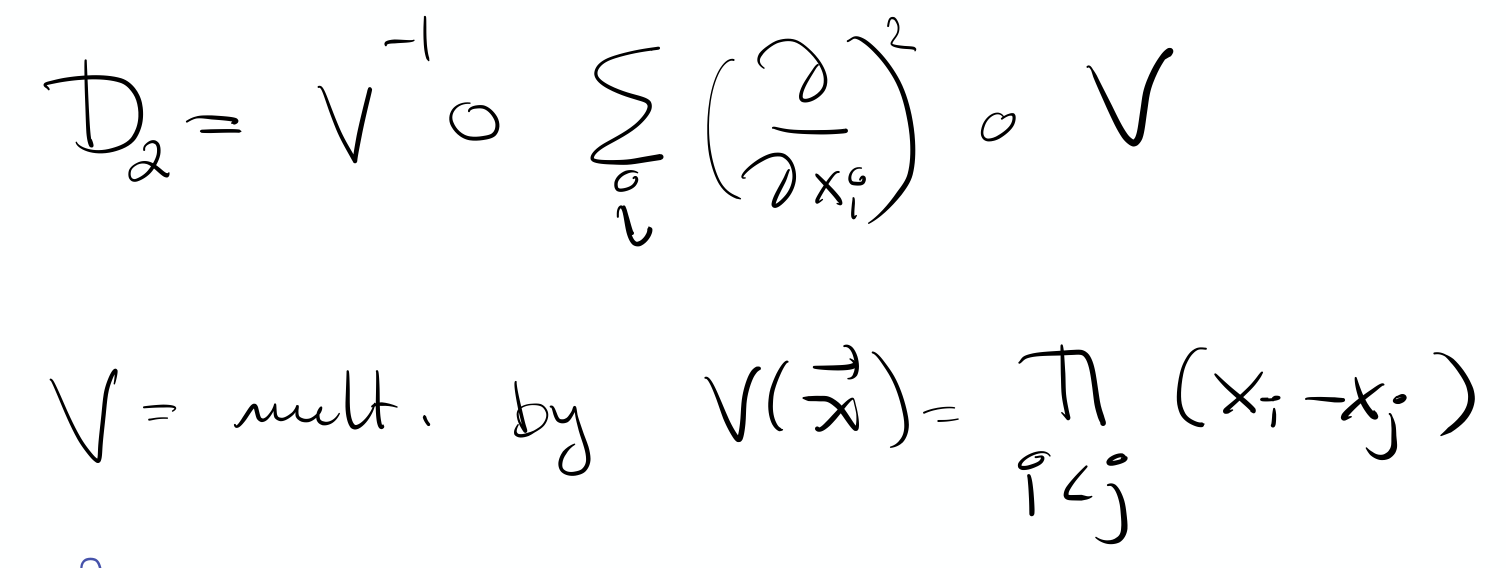 D₂ = V⁻¹ ∘ ∑ᵢ (∂/∂xᵢ)² ∘ V
V = mult. by V(x⃗) = ∏_{i<j} (xᵢ − xⱼ)